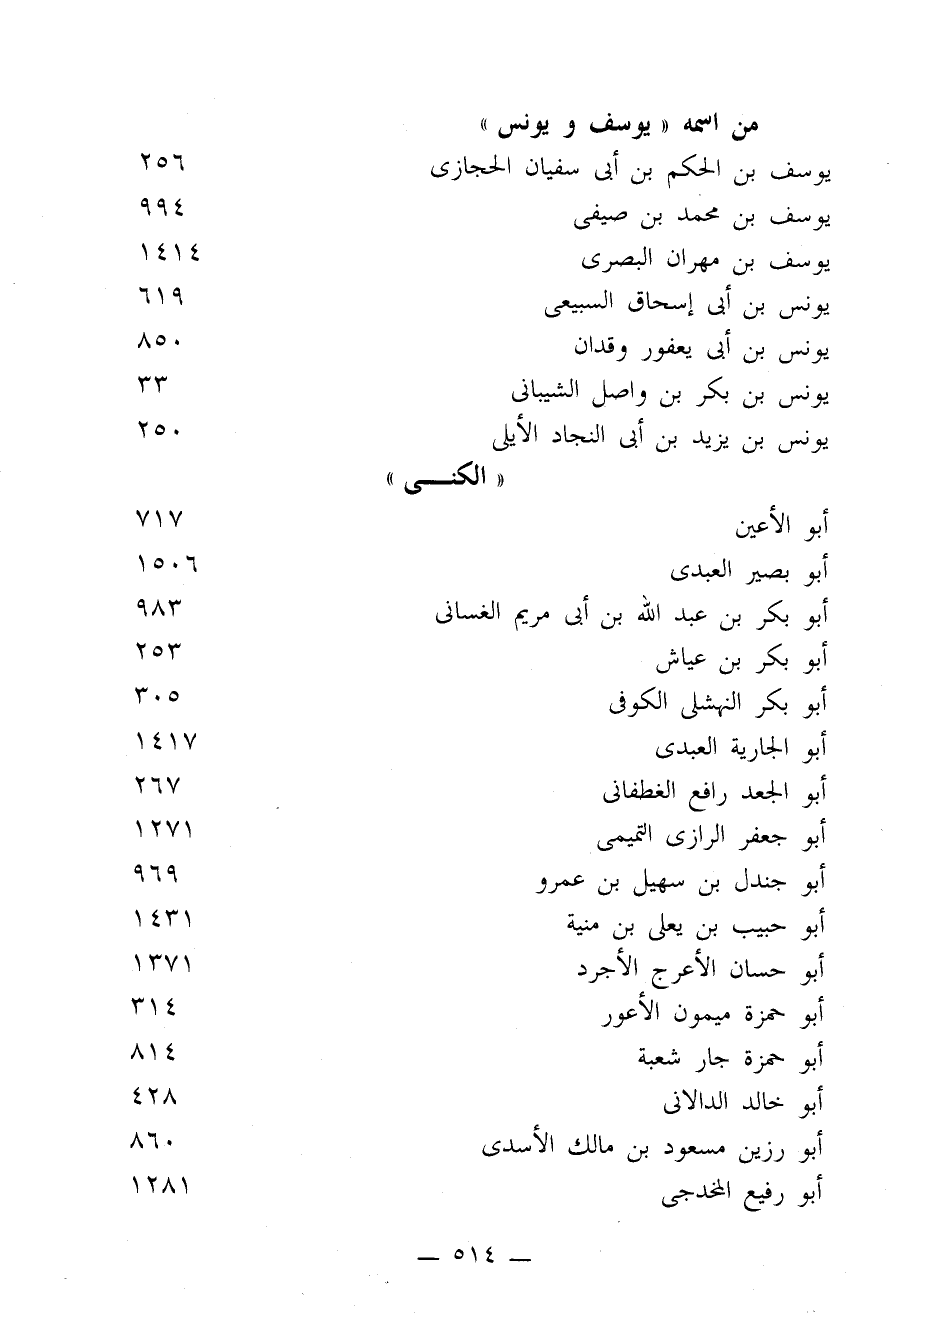 من اسمه « يوسف و يونس »
يوسف بن الحكم بن أبى سفيان الحجازى ٢٥٦
يوسف بن محمد بن صيفى ٩٩٤
يوسف بن مهران البصرى ١٤١٤
يونس بن أبى إسحاق السبيعى ٦١٩
يونس بن أبى يعفور وقدان ٨٥٠
يونس بن بكر بن واصل الشيبانى ٣٣
يونس بن يزيد بن أبى النجاد الأيلى ٢٥٠
« الكنـــى »
أبو الأعين ٧١٧
أبو بصير العبدى ١٥٠٦
أبو بكر بن عبد الله بن أبى مريم الغسانى ٩٨٣
أبو بكر بن عياش ٢٥٣
أبو بكر النهشلى الكوفى ٣٠٥
أبو الجارية العبدى ١٤١٧
أبو الجعد رافع الغطفانى ٢٦٧
أبو جعفر الرازى التميمى ١٢٧١
أبو جندل بن سهيل بن عمرو ٩٦٩
أبو حبيب بن يعلى بن منية ١٤٣١
أبو حسان الأعرج الأجرد ١٣٧١
أبو حمزة ميمون الأعور ٣١٤
أبو حمزة جار شعبة ٨١٤
أبو خالد الدالانى ٤٢٨
أبو رزين مسعود بن مالك الأسدى ٨٦٠
أبو رفيع المخدجى ١٢٨١
— ٥١٤ —